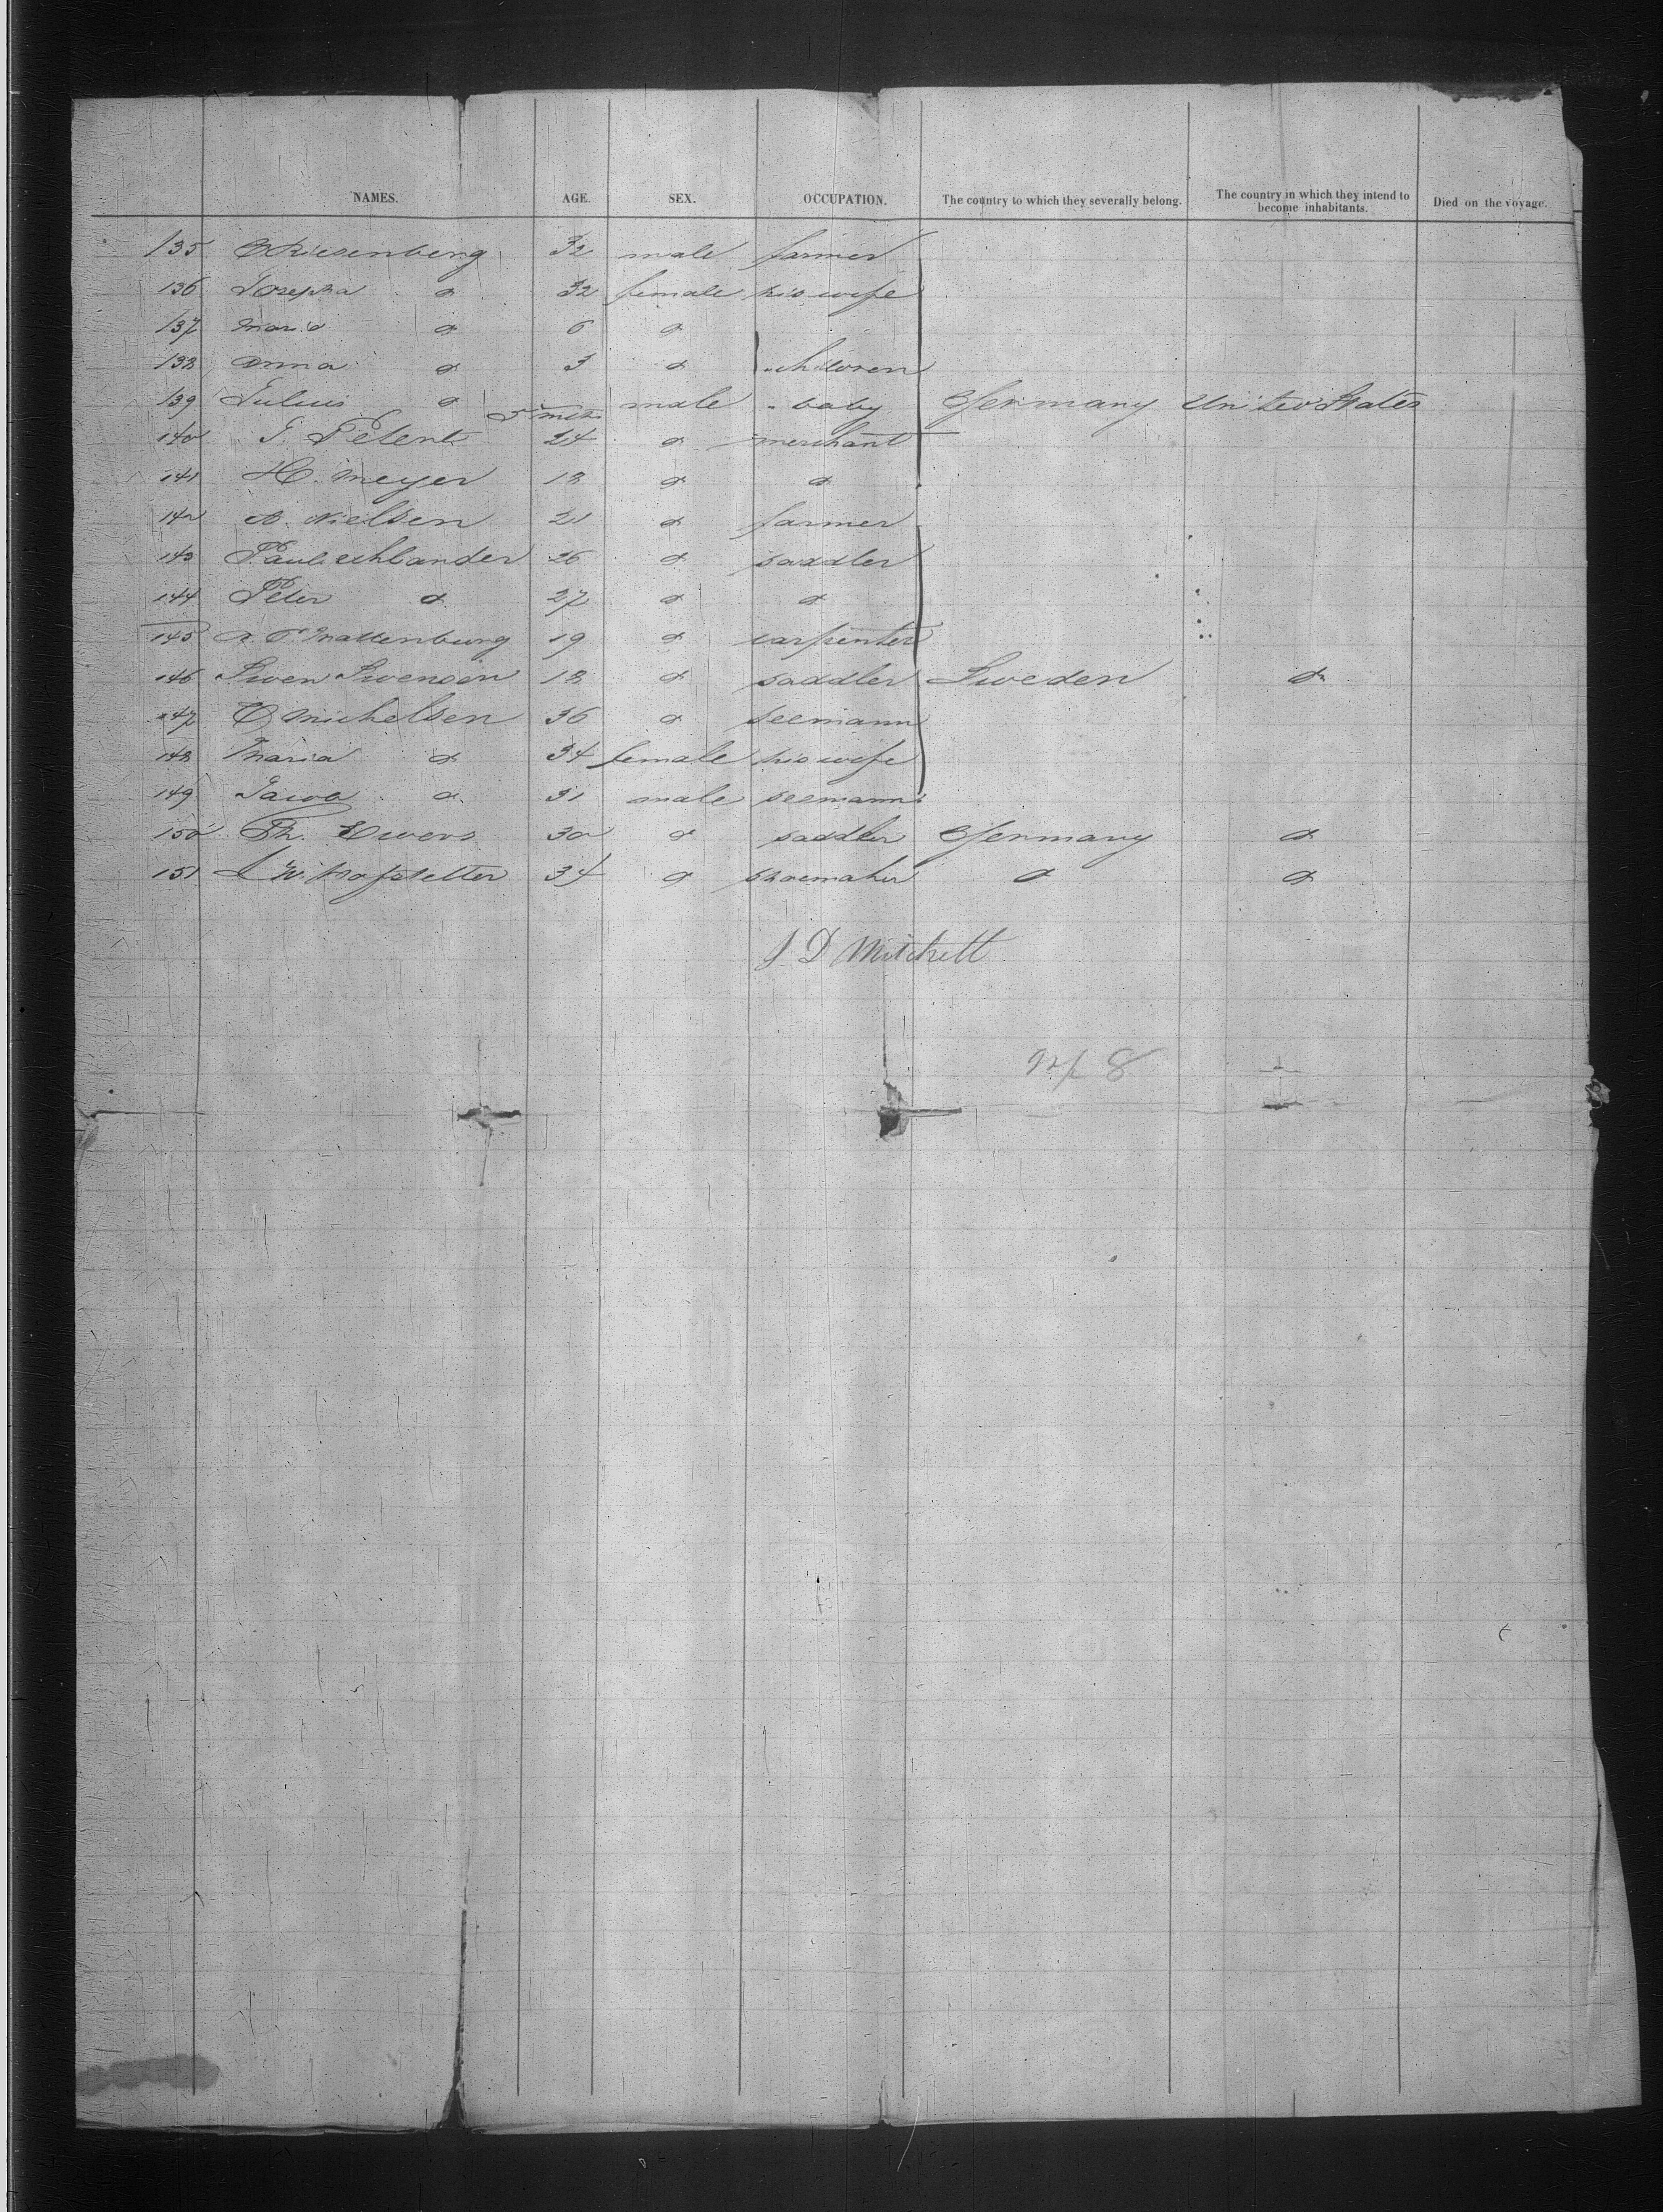 NAMES. AGE. SEX. OCCUPATION. The country to which they severally belong. The country in which they intend to become inhabitants. Died on the voyage.
135 Riesenberg 32 male farmer
136 Josepha do 32 female his wife
137 Maria do 6 do
138 Anna do 3 do children
139 Julius do mths male baby Germany United States
140 J. Petent 24 do merchant
141 H. Meyer 18 do do
142 A. Nielsen 21 do farmer
143 Paul 26 do saddler
144 Peter do 27 do do
145 19 do carpenter
146 Swen Swenson 18 do saddler Sweden do
147 Michelsen 36 do seemann
148 Maria do 34 female his wife
149 Jacob do 31 male seemann
150 Th. Ewers 30 do saddler Germany do
151 W. Hofstetter 34 do shoemaker do do
J D Mitchell
8